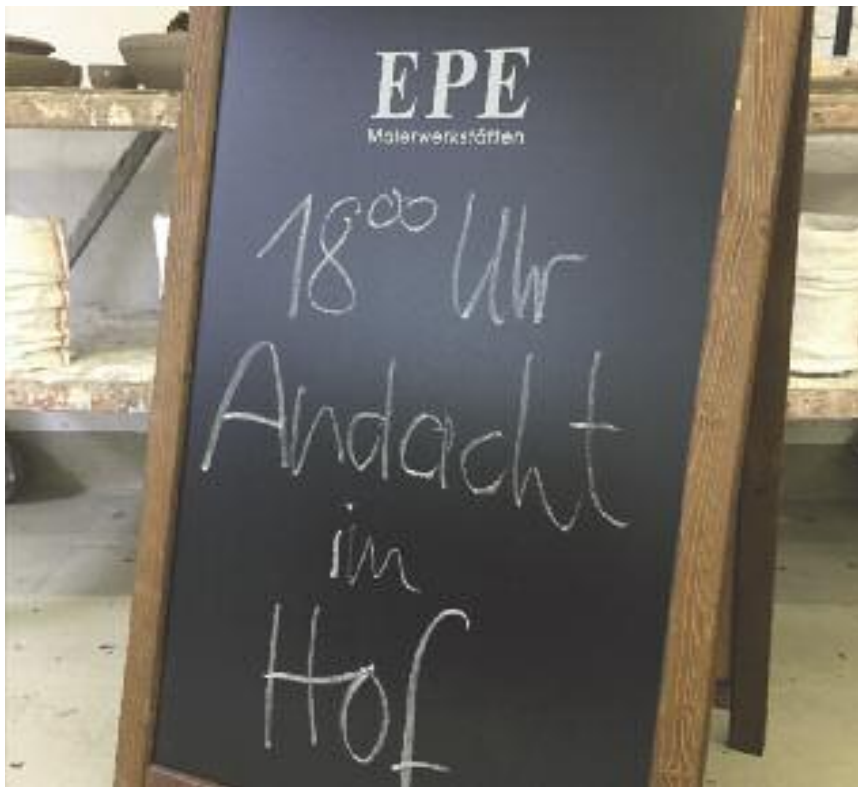 EPE
Malerwerkstätten
18⁰⁰ Uhr
Andacht
im
Hof